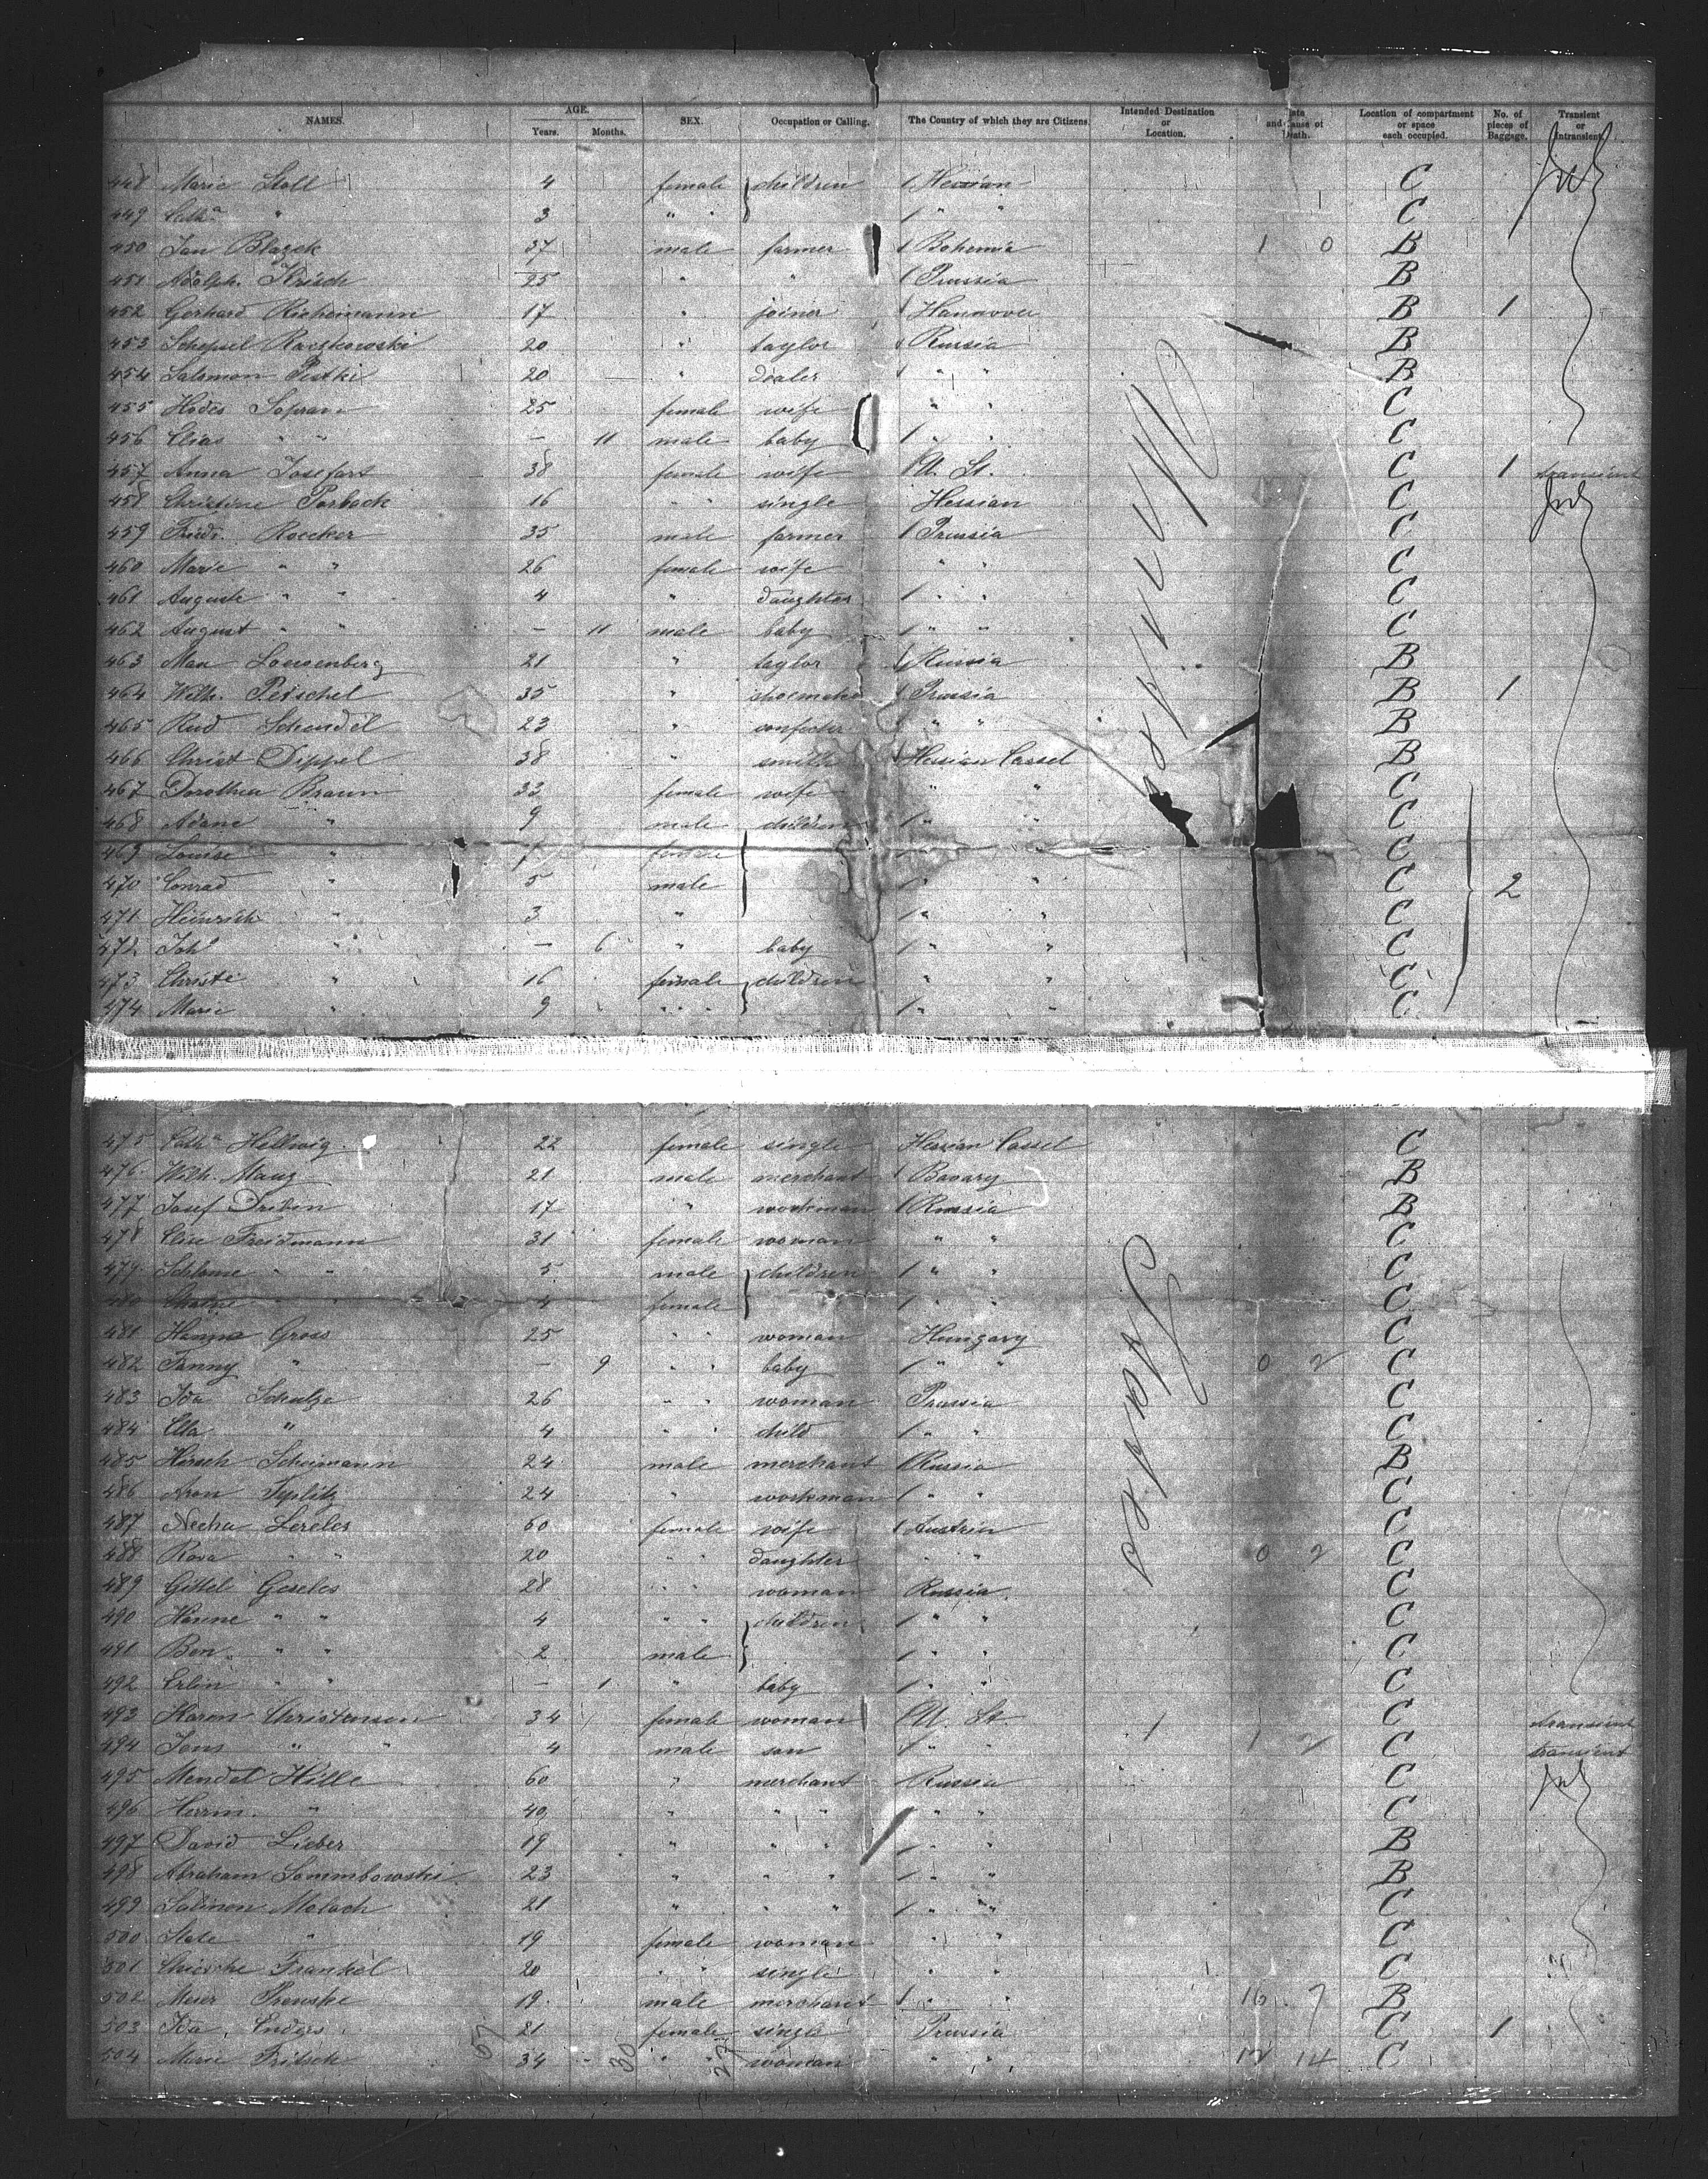 NAMES. AGE. Years. Months. SEX. Occupation or Calling. The Country of which they are Citizens. Intended Destination or Location. Date and Cause of Death. Location of compartment or space each occupied. No. of pieces of Baggage. Transient or Intransient
448 Marie Stoll 4 female children Hessian C
449 Cath.a " 3 " " " C
450 Jan Blazek 37 male farmer Bohemia 1 0 B
451 Adolph Krisch 25 " " Prussia B
452 Gerhard 17 " joiner Hannover B 1
453 Schepsel Raczkowski 20 " taylor Russia B
454 Salomon 20 " dealer " " B
455 Hodes 25 female wife " " C
456 Elias " " - 11 male baby " " C
457 Anna Josefart 38 female wife U. St. C 1 transient
458 Christine Porbeck 16 " " single Hessian C
459 Friedr. Roecker 35 male farmer Prussia C
460 Marie " " 26 female wife " " C
461 Auguste " " 4 " daughter " " C
462 August " " - 11 male baby " " C
463 Max Loewenberg 21 " taylor Russia B
464 Wilh. Petschel 35 " shoemaker Prussia B 1
465 Rud Schendel 23 " " " B
466 Christ Dippel 38 " smith Hessian Cassel B
467 Dorothea Braun 33 female wife " " C
468 Adam " 9 male children " " C
469 Louise " 7 female C
470 Conrad " 5 male " " C 2
471 Heinrich " 3 " " " C
472 Joh.s " - 6 " baby " " C
473 Christe " 16 female children " " C
474 Marie " 9 " " " " C
475 Cath.a Hellwig 22 female single Hessian Cassel C
476 Wilh. Mang 21 male merchant Bavary B
477 Josef Dreben 17 " workman Russia B
478 Elise Freidmann 31 female woman " " C
479 Schlome " " 5 male children " " C
480 " " 4 female " C
481 Hanna Gross 25 " " woman Hungary C
482 Fanny " - 9 " " baby " " 0 2 C
483 Ida Schulze 26 " " woman Prussia C
484 Ella " 4 " " child " " C
485 Hirsch Scheimann 24 male merchant Russia B
486 Aron Teplitz 24 " workman " " C
487 Necha Lereles 60 female wife Austria C
488 Rosa " " 20 " " daughter " " 0 2 C
489 Gittel Geseles 28 " " woman Russia C
490 Hanne " " 4 " " children " " C
491 Ben. " " 2 male " " C
492 " " - 1 " baby " " C
493 Karen Christensen 34 female woman U. St. C transient
494 Jens " " 4 male son " " 1 2 C transient
495 Mendel Hille 60 " merchant Russia C
496 Herrm. " 40 " " " " " C
497 David Lieber 19 " " " " " B
498 Abraham Sommbowski 23 " " " " " B
499 Salimon Molach 21 " " " " " C
500 " 19 female woman " " C
501 Frankel 20 " " single " " C
502 Meier Prenske 19 male merchant " " 16 7 B
503 Ida Enders 21 female single Prussia C 1
504 Marie Fritsch 34 " " woman " " 17 14 C
67 30 27